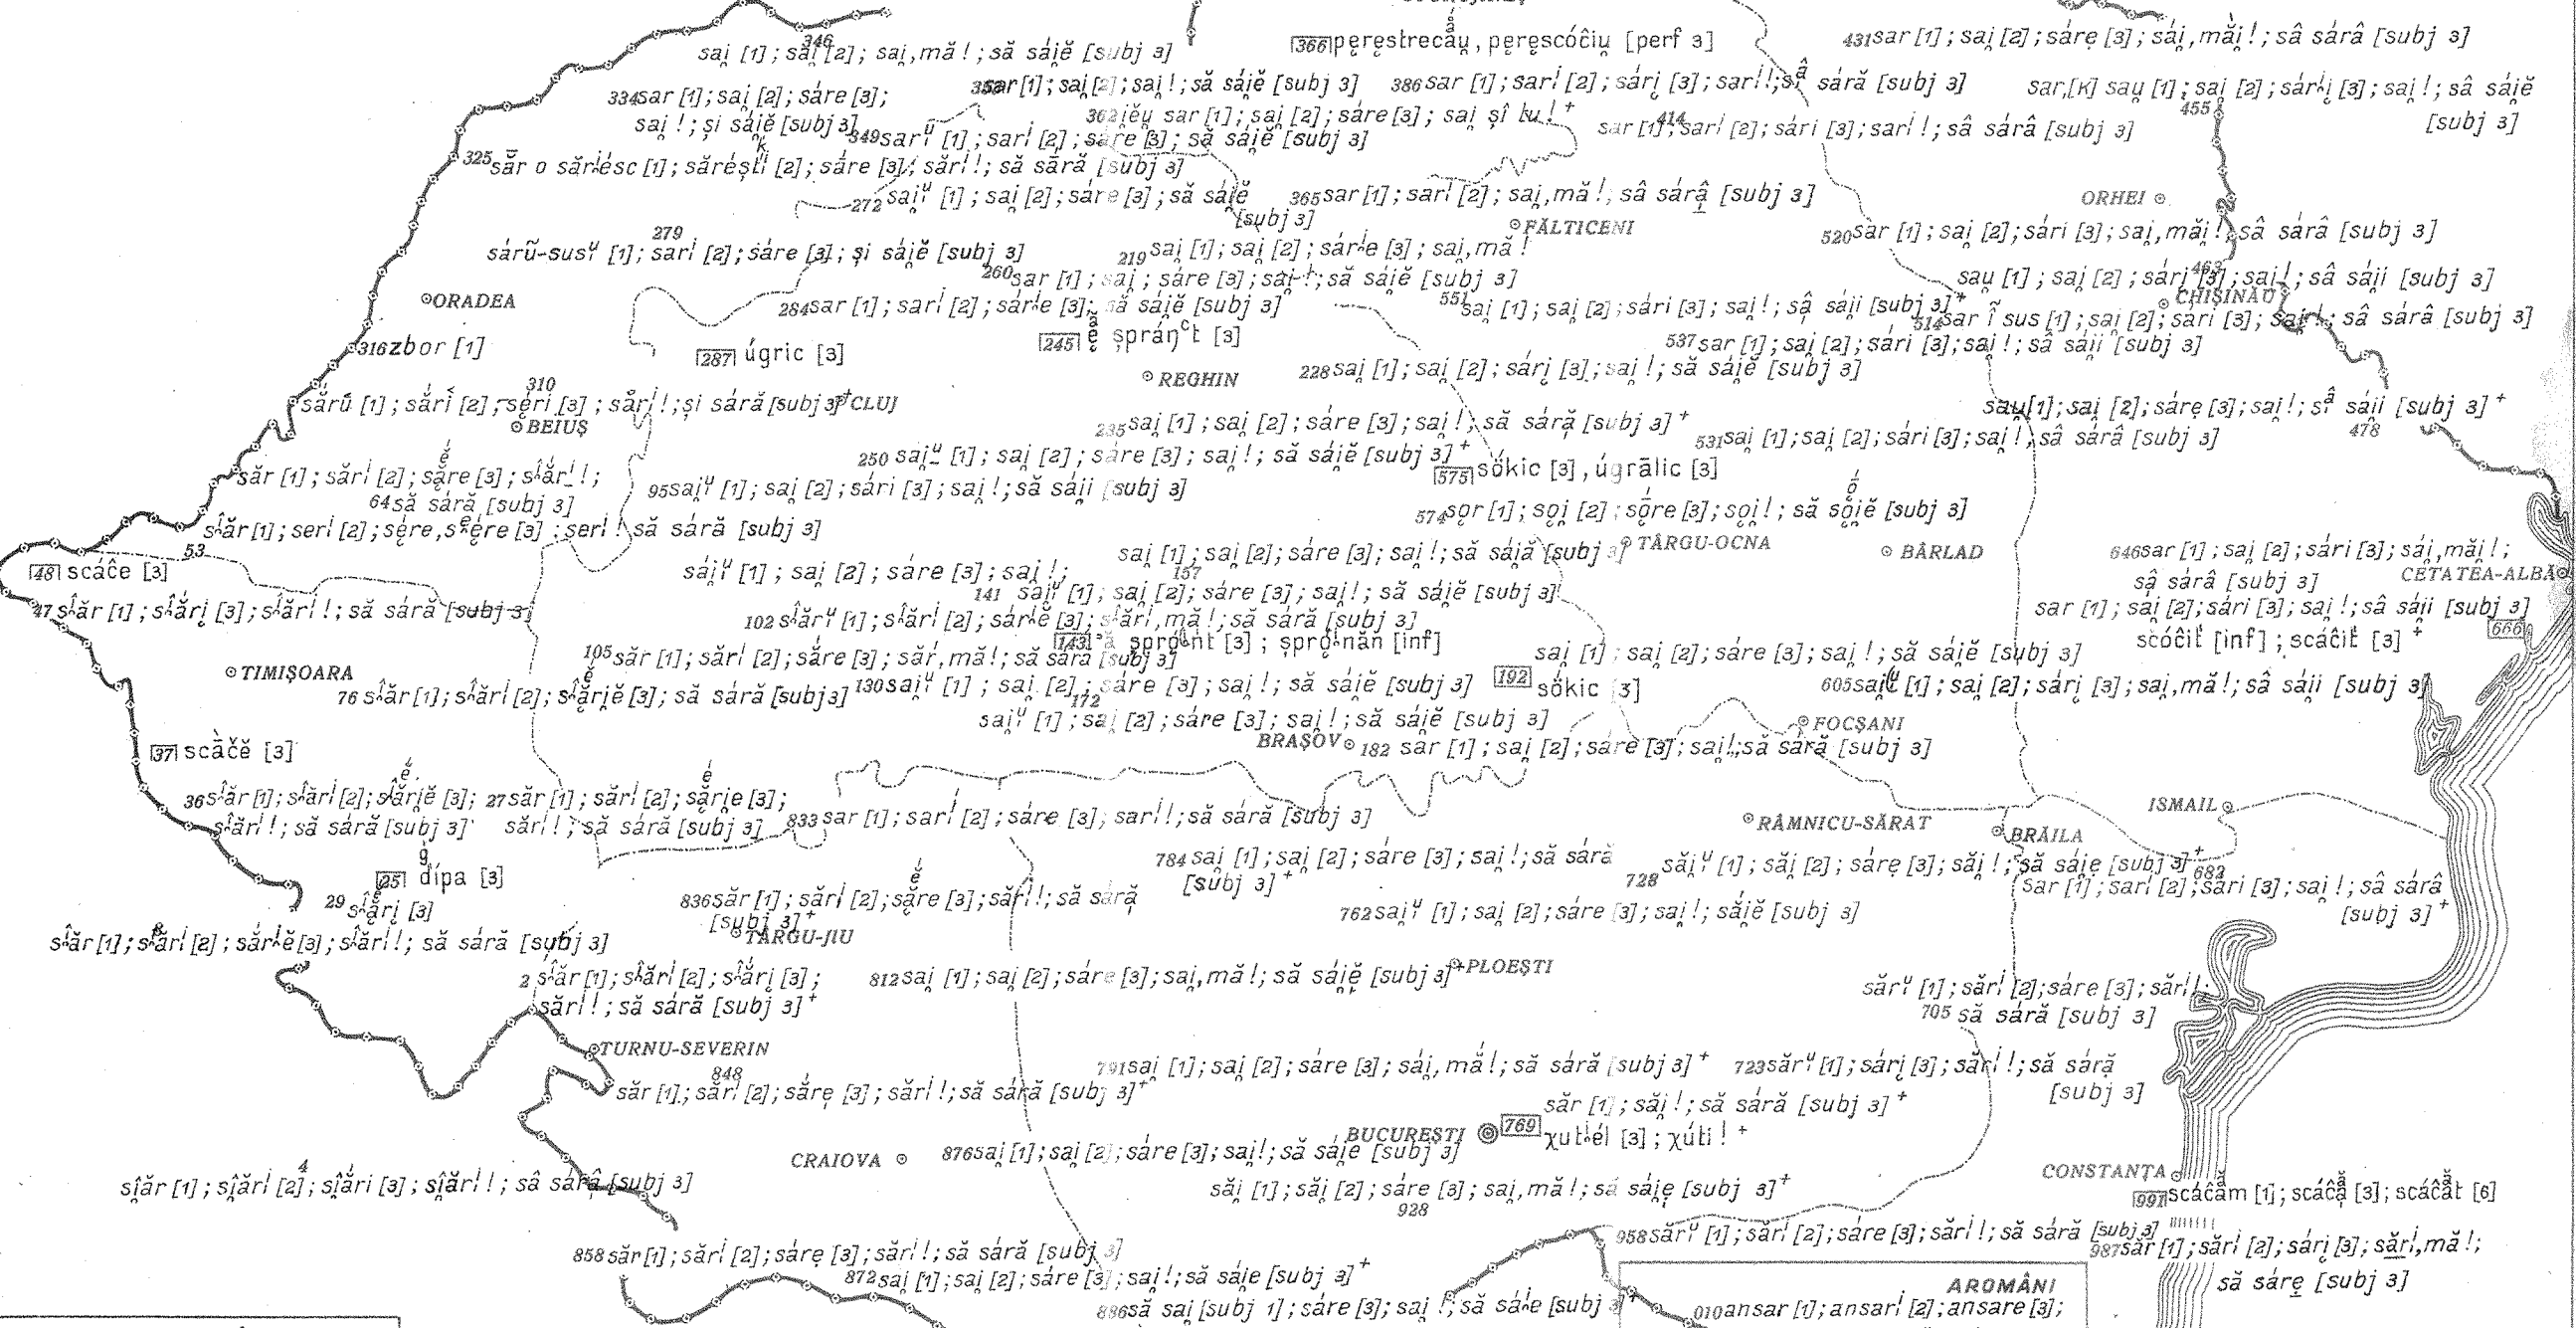 346
sai̯ [1]; sai̯ [2]; sai̯, mă!; să sái̯ĕ [subj 3]
[366] pęręstrecắu̯, pęręscóĉiu̯ [perf 3]
431 sar [1]; sai̯ [2]; sárę [3]; sái̯, mắi̯!; sâ sárâ [subj 3]
334 sar [1]; sai̯ [2]; sáre [3];
sai̯!; și sái̯ĕ [subj 3]
sar [1]; sai̯ [2]; sai̯!; să sái̯ĕ [subj 3]
386 sar [1]; sarⁱ [2]; sári̯ [3]; sarⁱ!; sâ sáră [subj 3]
sar, [K] sau̯ [1]; sai̯ [2]; sai̯!; sâ sái̯ĕ
455
[subj 3]
362 i̯ĕu̯ sar [1]; sai̯ [2]; sáre [3]; sai̯ șî tu! +
414
sar [1]; sarⁱ [2]; sári [3]; sarⁱ!; sâ sárâ [subj 3]
349 sarᵘ [1]; sarⁱ [2]; sáre [3]; să sái̯ĕ [subj 3]
325 săr o sărésc [1]; sáre [3]; sărⁱ!; să sără [subj 3]
272 sai̯ᵘ [1]; sai̯ [2]; sáre [3]; să sái̯ĕ
[subj 3]
365 sar [1]; sarⁱ [2]; sai̯, mă!; sâ sárậ [subj 3]
ORHEI
FĂLTICENI
279
sárŭ-susᵘ [1]; sarⁱ [2]; sáre [3]; și sái̯ĕ [subj 3]
219 sai̯ [1]; sai̯ [2]; sai̯, mă!
520 sar [1]; sai̯ [2]; sári [3]; sai̯, măi̯!; sâ sárâ [subj 3]
260 sar [1]; sai̯; sáre [3]; sai̯!; să sái̯ĕ [subj 3]
463
sau̯ [1]; sai̯ [2]; sári̯ [3]; sai̯!; sâ sáii [subj 3]
ORADEA
284 sar [1]; sarⁱ [2]; să sái̯ĕ [subj 3]
551 sai̯ [1]; sai̯ [2]; sári [3]; sai̯!; sâ sáii [subj 3] +
CHIȘINĂU
514 sar ĩ sus [1]; sai̯ [2]; sári [3]; sâ sárâ [subj 3]
[245] șpráŋᶜt [3]
316 zbor [1]
[287] úgric [3]
537 sar [1]; sai̯ [2]; sári [3]; sai̯!; sâ sáii [subj 3]
REGHIN
228 sai̯ [1]; sai̯ [2]; sári̯ [3]; sai̯!; să sái̯ĕ [subj 3]
310
sắrŭ [1]; sắrĭ [2]; sę́ri [3]; și sáră [subj 3] +
CLUJ
BEIUȘ
sau̯ [1]; sai̯ [2]; sárę [3]; sai̯!; sâ sáii [subj 3] +
478
235 sai̯ [1]; sai̯ [2]; sáre [3]; sai̯!; să sáră [subj 3] +
531 sai̯ [1]; sai̯ [2]; sári [3]; sai̯!; sâ sárâ [subj 3]
250 sai̯ᵘ [1]; sai̯ [2]; sáre [3]; sai̯!; să sái̯ĕ [subj 3] +
[575] sókic [3], úgrālic [3]
săr [1]; sărⁱ [2]; sắre [3];
64 să sáră [subj 3]
95 sai̯ᵘ [1]; sai̯ [2]; sári [3]; sai̯!; să sáii [subj 3]
574 sǫr [1]; sǫi̯ [2]; sǫ́re [3]; sǫi̯!; să sǫ́i̯ĕ [subj 3]
53
serⁱ [2]; serⁱ! să sáră [subj 3]
TÂRGU-OCNA
BÂRLAD
157
sai̯ [1]; sai̯ [2]; sáre [3]; sai̯!; să sái̯ă [subj 3]
646 sar [1]; sai̯ [2]; sári [3]; sái̯, măi̯!;
sậ sárâ [subj 3]
CETATEA-ALBĂ
[48] scáĉe [3]
sái̯ᵘ [1]; sai̯ [2]; sáre [3]; sai̯!;
141 sai̯ᵘ [1]; sai̯ [2]; sáre [3]; sai̯!; să sái̯ĕ [subj 3]
47 sîăr [1]; sîắri̯ [3]; sîắrⁱ!; să sáră [subj 3]
102 sîărᵘ [1]; sîărⁱ [2]; sîărⁱ, mă!; să sáră [subj 3]
sar [1]; sai̯ [2]; sári [3]; sai̯!; sâ sáii [subj 3]
[666]
scóĉit [inf]; scáĉit [3] +
[143] șprǫ́nt [3]; [inf]
105 săr [1]; sărⁱ [2]; sắre [3]; săr, mă!; să sáră [subj 3]
sai̯ [1]; sai̯ [2]; sáre [3]; sai̯!; să sái̯ĕ [subj 3]
[192] sókic [3]
TIMIȘOARA
76 sîăr [1]; sîărⁱ [2]; să sáră [subj 3]
130 sai̯ᵘ [1]; sai̯ [2]; sáre [3]; sai̯!; să sái̯ĕ [subj 3]
605 [1]; sai̯ [2]; sári̯ [3]; sai̯, mă!; sâ sáii [subj 3]
172
sai̯ᵘ [1]; sai̯ [2]; sáre [3]; sai̯!; să sái̯ĕ [subj 3]
FOCȘANI
BRAȘOV
182 sar [1]; sai̯ [2]; sáre [3]; sai̯!; să sáră [subj 3]
[37] scàĉĕ [3]
36 sîăr [1]; sîărⁱ [2]; sîắri̯ĕ [3];
sîărⁱ!; să sáră [subj 3]
27 săr [1]; sărⁱ [2]; sắrie [3];
sărⁱ!; să sáră [subj 3]
833 sar [1]; sarⁱ [2]; sáre [3]; sarⁱ!; să sáră [subj 3]
ISMAIL
RÂMNICU-SĂRAT
BRĂILA
784 sai̯ [1]; sai̯ [2]; sáre [3]; sai̯!; să sáră
[subj 3] +
728 săi̯ᵘ [1]; săi̯ [2]; sárę [3]; săi̯!; să sái̯ę [subj 3] +
682
sar [1]; sarⁱ [2]; sári [3]; sai̯!; sâ sárâ
[subj 3] +
[25] dípa [3]
29 sîắri̯ [3]
836 săr [1]; sărⁱ [2]; sắre [3]; sărⁱ!; să sáră
[subj 3] +
TÂRGU-JIU
762 sai̯ᵘ [1]; sai̯ [2]; sáre [3]; sai̯!; săi̯ĕ [subj 3]
8
sîăr [1]; sîărⁱ [2]; sîărⁱ!; să sáră [subj 3]
2 sîăr [1]; sîărⁱ [2]; sîắri̯ [3];
sărⁱ!; să sáră [subj 3] +
812 sai̯ [1]; sai̯ [2]; sáre [3]; sai̯, mă!; să sái̯ĕ [subj 3] +
PLOEȘTI
sărᵘ [1]; sărⁱ [2]; sáre [3]; sărⁱ!;
705 să sáră [subj 3]
TURNU-SEVERIN
848
săr [1]; sărⁱ [2]; sắrę [3]; sărⁱ!; să sáră [subj 3] +
791 sai̯ [1]; sai̯ [2]; sáre [3]; sái̯, mắ!; să sáră [subj 3] +
723 sărᵘ [1]; sári̯ [3]; sărⁱ!; să sáră
[subj 3]
săr [1]; săi̯!; să sáră [subj 3] +
BUCUREȘTI
[769] [3]; χúti! +
CRAIOVA
876 sai̯ [1]; sai̯ [2]; sáre [3]; sai̯!; să sái̯e [subj 3]
4
sîăr [1]; sîărⁱ [2]; sîắri [3]; sîărⁱ!; sâ sárâ [subj 3]
săi̯ [1]; săi̯ [2]; sáre [3]; sai̯, mă!; să sái̯ę [subj 3] +
928
CONSTANȚA
[991] scáĉắm [1]; scáĉắ [3]; scáĉắt [6]
958 sărᵘ [1]; sărⁱ [2]; sáre [3]; sărⁱ!; să sáră [subj 3]
987 săr [1]; sărⁱ [2]; sári̯ [3]; sărⁱ, mă!;
să sárę [subj 3]
858 săr [1]; sărⁱ [2]; sárę [3]; sărⁱ!; să sáră [subj 3]
872 sai̯ [1]; sai̯ [2]; sáre [3]; sai̯!; să sái̯e [subj 3] +
886 să sai̯ [subj 1]; sáre [3]; sai̯!; [subj 3] +
AROMÂNI
010 ansar [1]; ansarⁱ [2]; ansare [3];